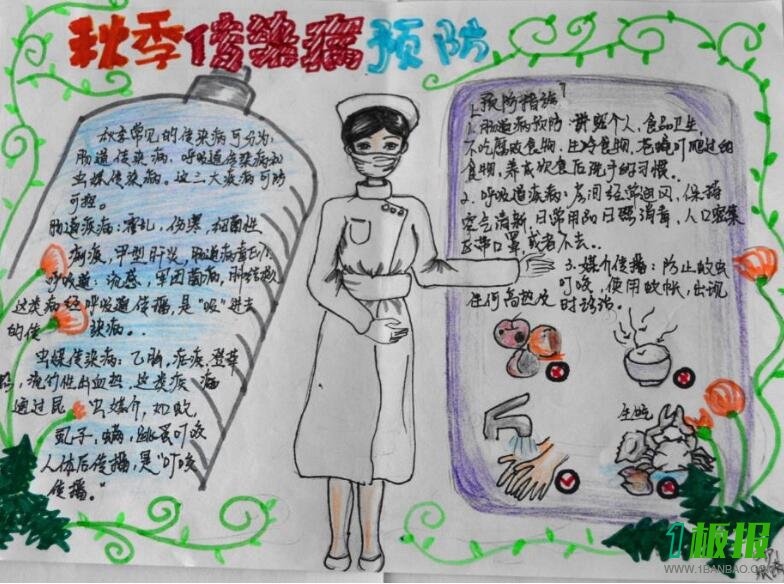 秋季传染病预防
秋季常见的传染病可分为:
肠道传染病、呼吸道传染病和
虫媒传染病。这三大疾病可防
可控。
肠道疾病:霍乱,伤寒,细菌性
痢疾,甲型肝炎,肠道病毒
呼吸道:流感,军团菌病,肺结核
这类病经呼吸道传播,是“吸”进去
的传染病..
虫媒传染病:乙脑,疟疾,登革
热,流行性出血热,这类疾病
通过昆虫媒介,如蚊,
虱子,螨,跳蚤叮咬
人体后传播,是“叮咬
传播。”
预防措施
1.肠道病预防:讲究个人,食品卫生,
不吃腐败食物,生冷食物,老蝇叮爬过的
食物,养成饮食后洗手的习惯。
2、呼吸道疾病:房间经常通风,保持
空气清新,日常用阳日照消毒,人口密集
区带口罩或者不去..
3.媒介传播:防止蚊虫
叮咬,使用蚊帐,出现
任何高热及时诊治。
生吃
1板报
WWW.1BANBAO.COM